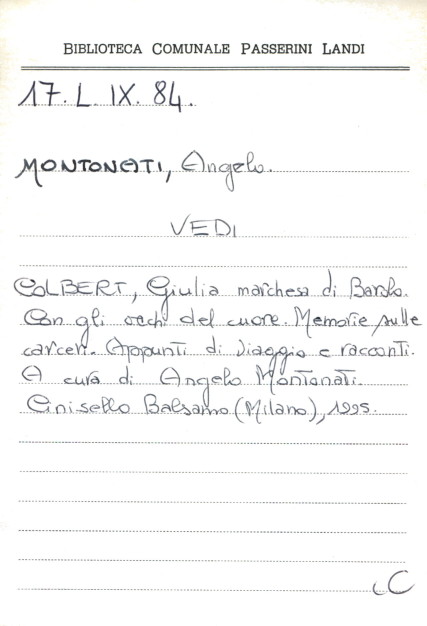 BIBLIOTECA COMUNALE PASSERINI LANDI
17. L. IX. 84.
MONTONATI, Angelo.
VEDI
COLBERT, Giulia marchesa di Barolo.
Con gli occhi del cuore. Memorie sulle
carceri. Appunti di viaggio e racconti.
A cura di Angelo Montonati.
Cinisello Balsamo (Milano), 1995.
C